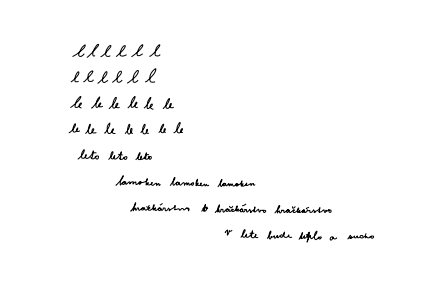 l l l l l l
l l l l l l
le le le le le le
le le le le le le le
leto leto leto
lamoken lamoken lamoken
hračkárstvo b hračkárstvo hračkárstvo
v lete bude teplo a sucho